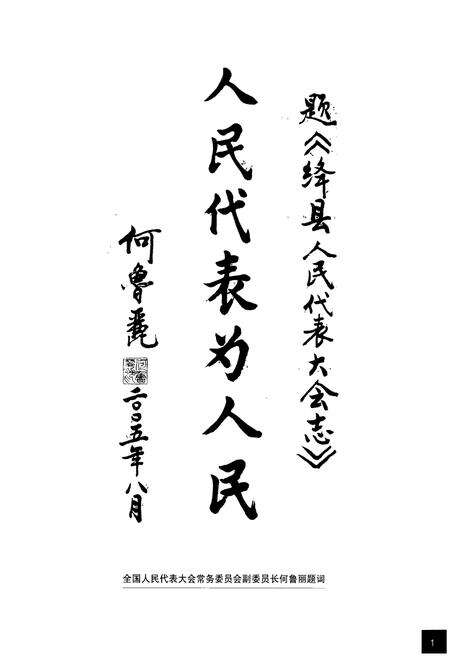 题《绛县人民代表大会志》
人民代表为人民
何鲁丽
二00五年八月
全国人民代表大会常务委员会副委员长何鲁丽题词
1